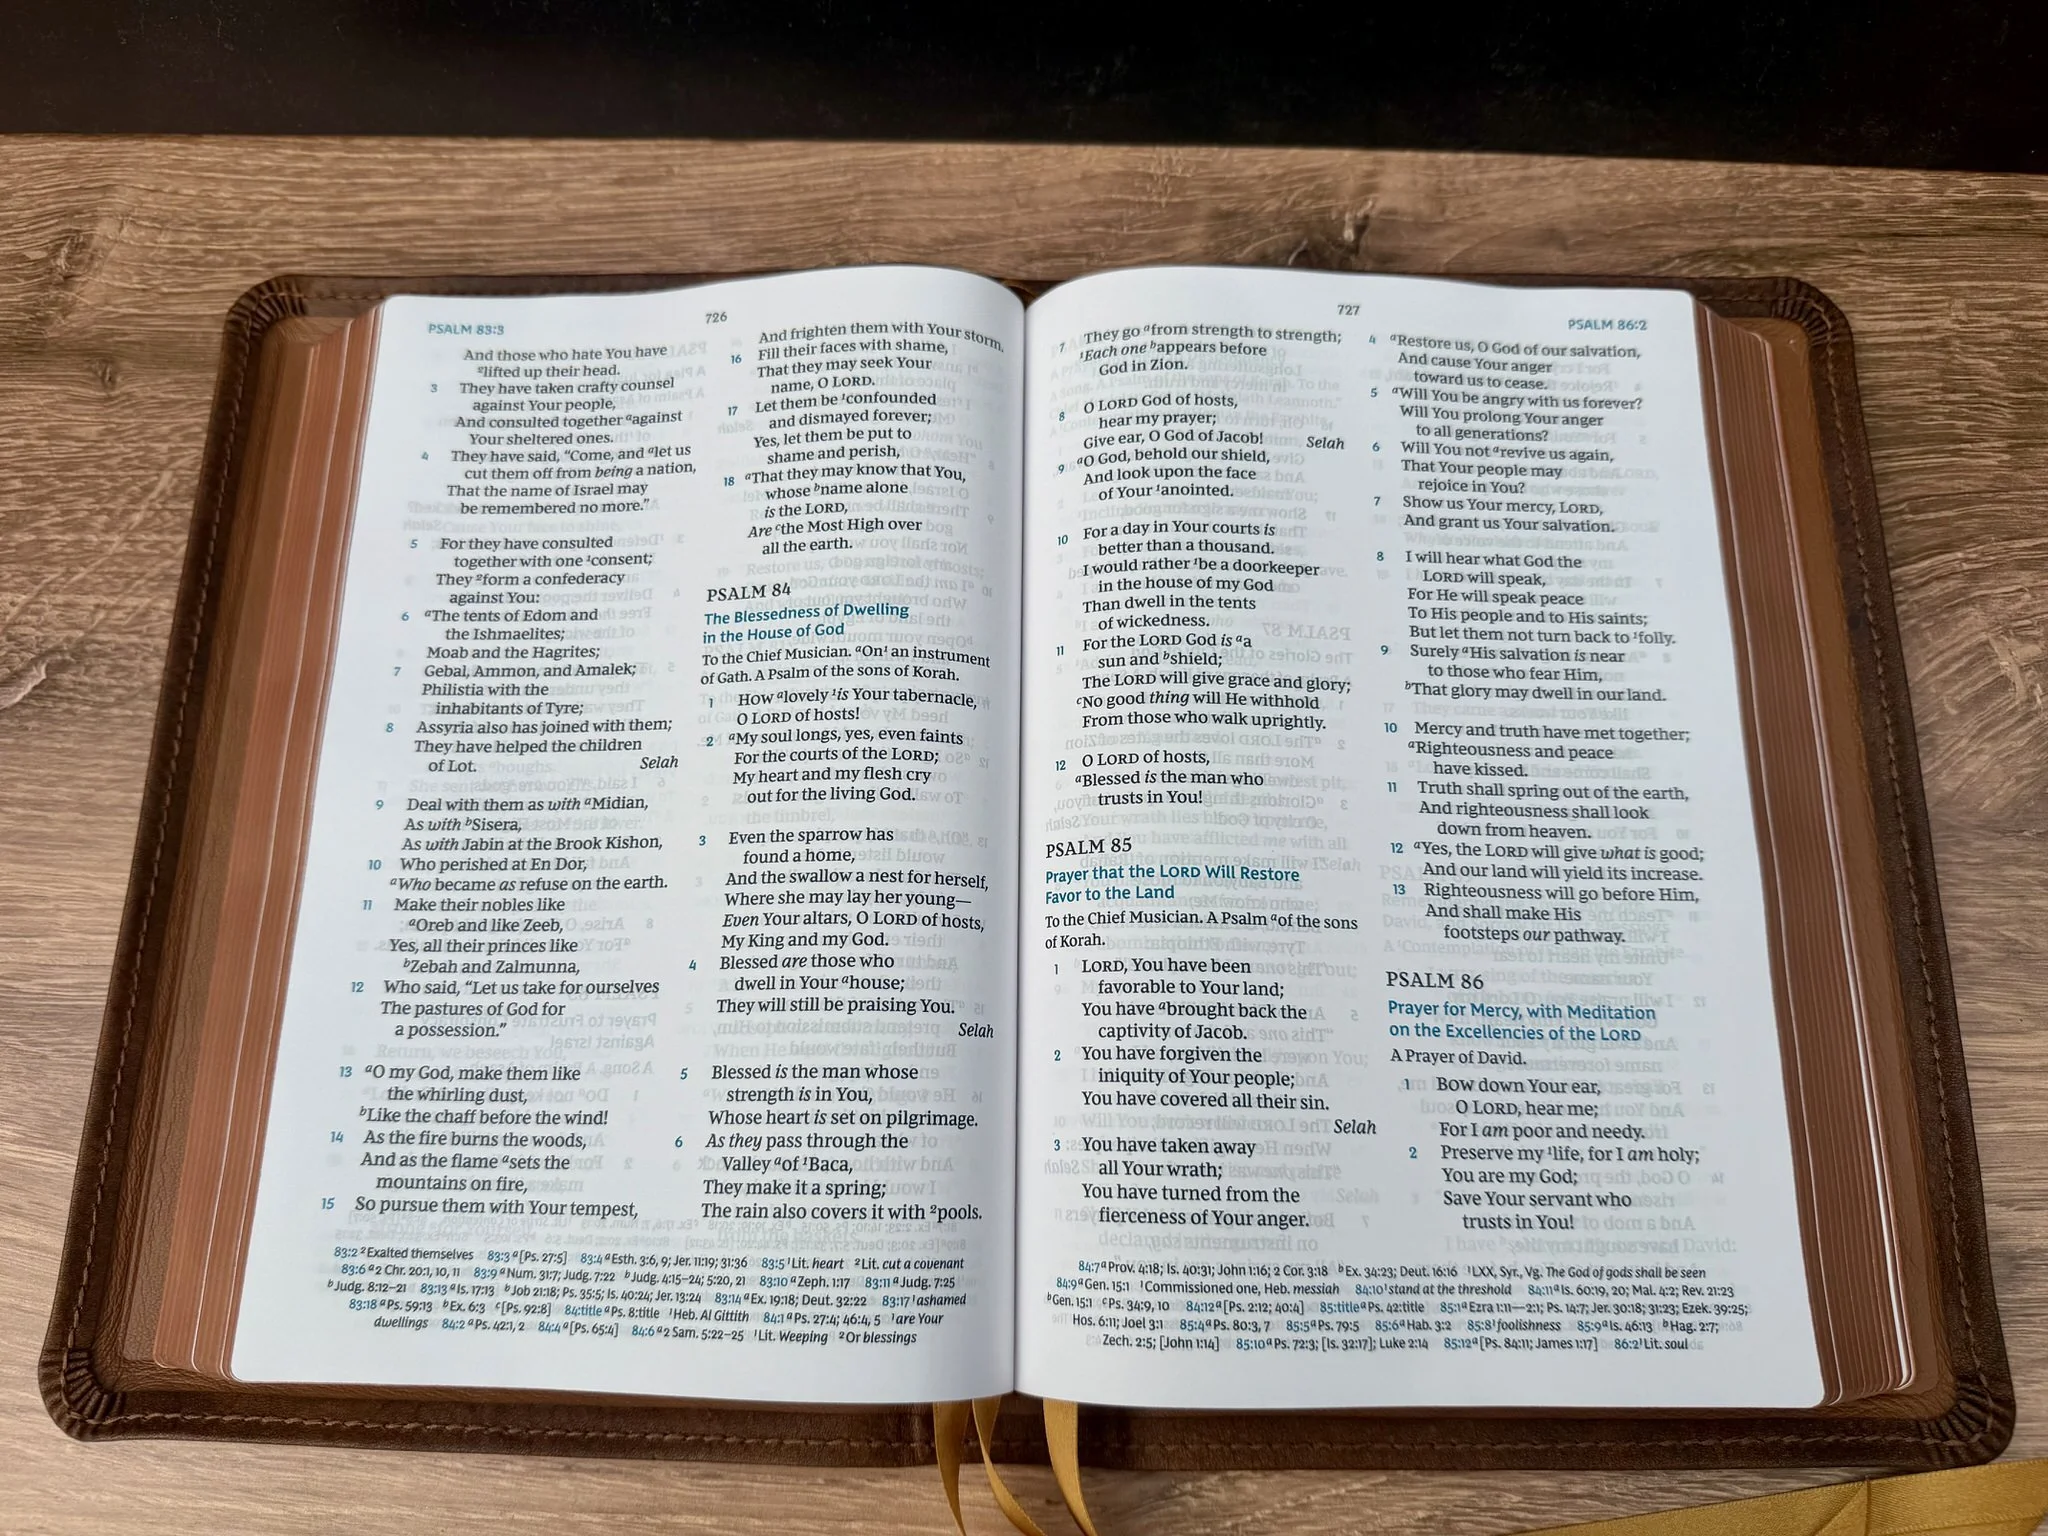 PSALM 83:3
726
And those who hate You have
²lifted up their head.
3 They have taken crafty counsel
against Your people,
And consulted together ᵃagainst
Your sheltered ones.
4 They have said, “Come, and ᵃlet us
cut them off from being a nation,
That the name of Israel may
be remembered no more.”
5 For they have consulted
together with one ¹consent;
They ²form a confederacy
against You:
6 ᵃThe tents of Edom and
the Ishmaelites;
Moab and the Hagrites;
7 Gebal, Ammon, and Amalek;
Philistia with the
inhabitants of Tyre;
8 Assyria also has joined with them;
They have helped the children
of Lot. Selah
9 Deal with them as with ᵃMidian,
As with ᵇSisera,
As with Jabin at the Brook Kishon,
10 Who perished at En Dor,
ᵃWho became as refuse on the earth.
11 Make their nobles like
ᵃOreb and like Zeeb,
Yes, all their princes like
ᵇZebah and Zalmunna,
12 Who said, “Let us take for ourselves
The pastures of God for
a possession.”
13 ᵃO my God, make them like
the whirling dust,
ᵇLike the chaff before the wind!
14 As the fire burns the woods,
And as the flame ᵃsets the
mountains on fire,
15 So pursue them with Your tempest,
And frighten them with Your storm.
16 Fill their faces with shame,
That they may seek Your
name, O LORD.
17 Let them be ¹confounded
and dismayed forever;
Yes, let them be put to
shame and perish,
18 ᵃThat they may know that You,
whose ᵇname alone
is the LORD,
Are ᶜthe Most High over
all the earth.
PSALM 84
The Blessedness of Dwelling
in the House of God
To the Chief Musician. ᵃOn¹ an instrument
of Gath. A Psalm of the sons of Korah.
1 How ᵃlovely ¹is Your tabernacle,
O LORD of hosts!
2 ᵃMy soul longs, yes, even faints
For the courts of the LORD;
My heart and my flesh cry
out for the living God.
3 Even the sparrow has
found a home,
And the swallow a nest for herself,
Where she may lay her young—
Even Your altars, O LORD of hosts,
My King and my God.
4 Blessed are those who
dwell in Your ᵃhouse;
They will still be praising You.
Selah
5 Blessed is the man whose
strength is in You,
Whose heart is set on pilgrimage.
6 As they pass through the
Valley ᵃof ¹Baca,
They make it a spring;
The rain also covers it with ²pools.
83:2 ²Exalted themselves 83:3 ᵃ[Ps. 27:5] 83:4 ᵃEsth. 3:6, 9; Jer. 11:19; 31:36 83:5 ¹Lit. heart ²Lit. cut a covenant
83:6 ᵃ2 Chr. 20:1, 10, 11 83:9 ᵃNum. 31:7; Judg. 7:22 ᵇJudg. 4:15–24; 5:20, 21 83:10 ᵃZeph. 1:17 83:11 ᵃJudg. 7:25
ᵇJudg. 8:12–21 83:13 ᵃIs. 17:13 ᵇJob 21:18; Ps. 35:5; Is. 40:24; Jer. 13:24 83:14 ᵃEx. 19:18; Deut. 32:22 83:17 ¹ashamed
83:18 ᵃPs. 59:13 ᵇEx. 6:3 ᶜ[Ps. 92:8] 84:title ᵃPs. 8:title ¹Heb. Al Gittith 84:1 ᵃPs. 27:4; 46:4, 5 ¹are Your
dwellings 84:2 ᵃPs. 42:1, 2 84:4 ᵃ[Ps. 65:4] 84:6 ᵃ2 Sam. 5:22–25 ¹Lit. Weeping ²Or blessings
727
PSALM 86:2
7 They go ᵃfrom strength to strength;
¹Each one ᵇappears before
God in Zion.
8 O LORD God of hosts,
hear my prayer;
Give ear, O God of Jacob! Selah
9 ᵃO God, behold our shield,
And look upon the face
of Your ¹anointed.
10 For a day in Your courts is
better than a thousand.
I would rather ¹be a doorkeeper
in the house of my God
Than dwell in the tents
of wickedness.
11 For the LORD God is ᵃa
sun and ᵇshield;
The LORD will give grace and glory;
ᶜNo good thing will He withhold
From those who walk uprightly.
12 O LORD of hosts,
ᵃBlessed is the man who
trusts in You!
PSALM 85
Prayer that the LORD Will Restore
Favor to the Land
To the Chief Musician. A Psalm ᵃof the sons
of Korah.
1 LORD, You have been
favorable to Your land;
You have ᵃbrought back the
captivity of Jacob.
2 You have forgiven the
iniquity of Your people;
You have covered all their sin.
Selah
3 You have taken away
all Your wrath;
You have turned from the
fierceness of Your anger.
4 ᵃRestore us, O God of our salvation,
And cause Your anger
toward us to cease.
5 ᵃWill You be angry with us forever?
Will You prolong Your anger
to all generations?
6 Will You not ᵃrevive us again,
That Your people may
rejoice in You?
7 Show us Your mercy, LORD,
And grant us Your salvation.
8 I will hear what God the
LORD will speak,
For He will speak peace
To His people and to His saints;
But let them not turn back to ¹folly.
9 Surely ᵃHis salvation is near
to those who fear Him,
ᵇThat glory may dwell in our land.
10 Mercy and truth have met together;
ᵃRighteousness and peace
have kissed.
11 Truth shall spring out of the earth,
And righteousness shall look
down from heaven.
12 ᵃYes, the LORD will give what is good;
And our land will yield its increase.
13 Righteousness will go before Him,
And shall make His
footsteps our pathway.
PSALM 86
Prayer for Mercy, with Meditation
on the Excellencies of the LORD
A Prayer of David.
1 Bow down Your ear,
O LORD, hear me;
For I am poor and needy.
2 Preserve my ¹life, for I am holy;
You are my God;
Save Your servant who
trusts in You!
84:7 ᵃProv. 4:18; Is. 40:31; John 1:16; 2 Cor. 3:18 ᵇEx. 34:23; Deut. 16:16 ¹LXX, Syr., Vg. The God of gods shall be seen
84:9 ᵃGen. 15:1 ¹Commissioned one, Heb. messiah 84:10 ¹stand at the threshold 84:11 ᵃIs. 60:19, 20; Mal. 4:2; Rev. 21:23
ᵇGen. 15:1 ᶜPs. 34:9, 10 84:12 ᵃ[Ps. 2:12; 40:4] 85:title ᵃPs. 42:title 85:1 ᵃEzra 1:11—2:1; Ps. 14:7; Jer. 30:18; 31:23; Ezek. 39:25;
Hos. 6:11; Joel 3:1 85:4 ᵃPs. 80:3, 7 85:5 ᵃPs. 79:5 85:6 ᵃHab. 3:2 85:8 ¹foolishness 85:9 ᵃIs. 46:13 ᵇHag. 2:7;
Zech. 2:5; [John 1:14] 85:10 ᵃPs. 72:3; [Is. 32:17]; Luke 2:14 85:12 ᵃ[Ps. 84:11; James 1:17] 86:2 ¹Lit. soul